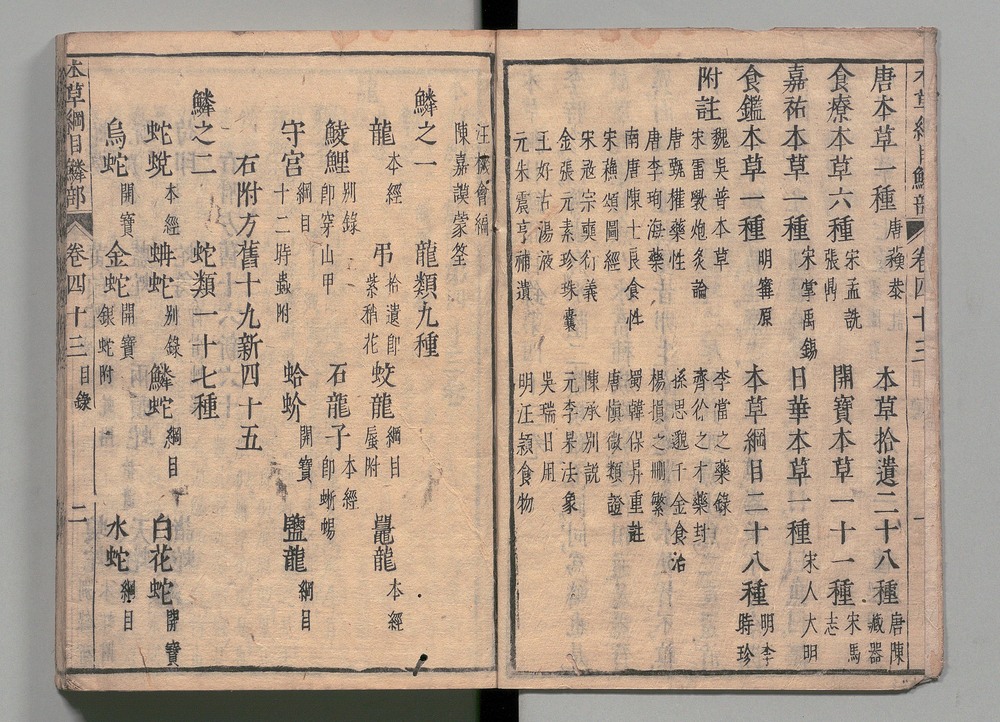 唐本草一種唐蘇恭
本草拾遺二十八種唐陳藏器
食療本草六種宋孟詵張鼎
開寶本草一十一種宋馬志
嘉祐本草一種宋掌禹錫
日華本草一種宋人大明
食鑑本草一種明甯原
本草綱目二十八種明李時珍
附註
魏吳普本草
李當之藥錄
宋雷斆炮炙論
齊徐之才藥封
唐甄權藥性
孫思邈千金食治
唐李珣海藥
楊損之刪繁
南唐陳士良食性
蜀韓保昇重註
宋蘇頌圖經
唐慎微類證
宋寇宗奭衍義
陳承別說
金張元素珍珠囊
元李杲法象
王好古湯液
吳瑞日用
元朱震亨補遺
明汪穎食物
汪機會編
陳嘉謨蒙筌
鱗之一 龍類九種
龍本經
弔拾遺即紫稍花
蛟龍綱目蜃附
鼉龍本經
鯪鯉別錄即穿山甲
石龍子本經即蜥蜴
守宮綱目十二時蟲附
蛤蚧開寶
鹽龍綱目
右附方舊十九新四十五
鱗之二 蛇類一十七種
蛇蛻本經
蚺蛇別錄
鱗蛇綱目
白花蛇開寶
烏蛇開寶
金蛇開寶銀蛇附
水蛇綱目
本草綱目鱗部 卷四十三 目錄 二